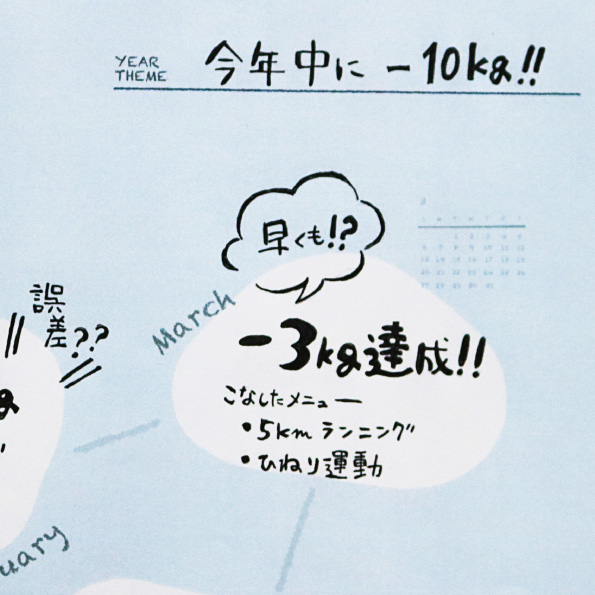 YEAR
THEME
今年中に -10kg!!
早くも!?
March
誤差??
-3kg達成!!
こなしたメニュー
・5km ランニング
・ひねり運動
uary